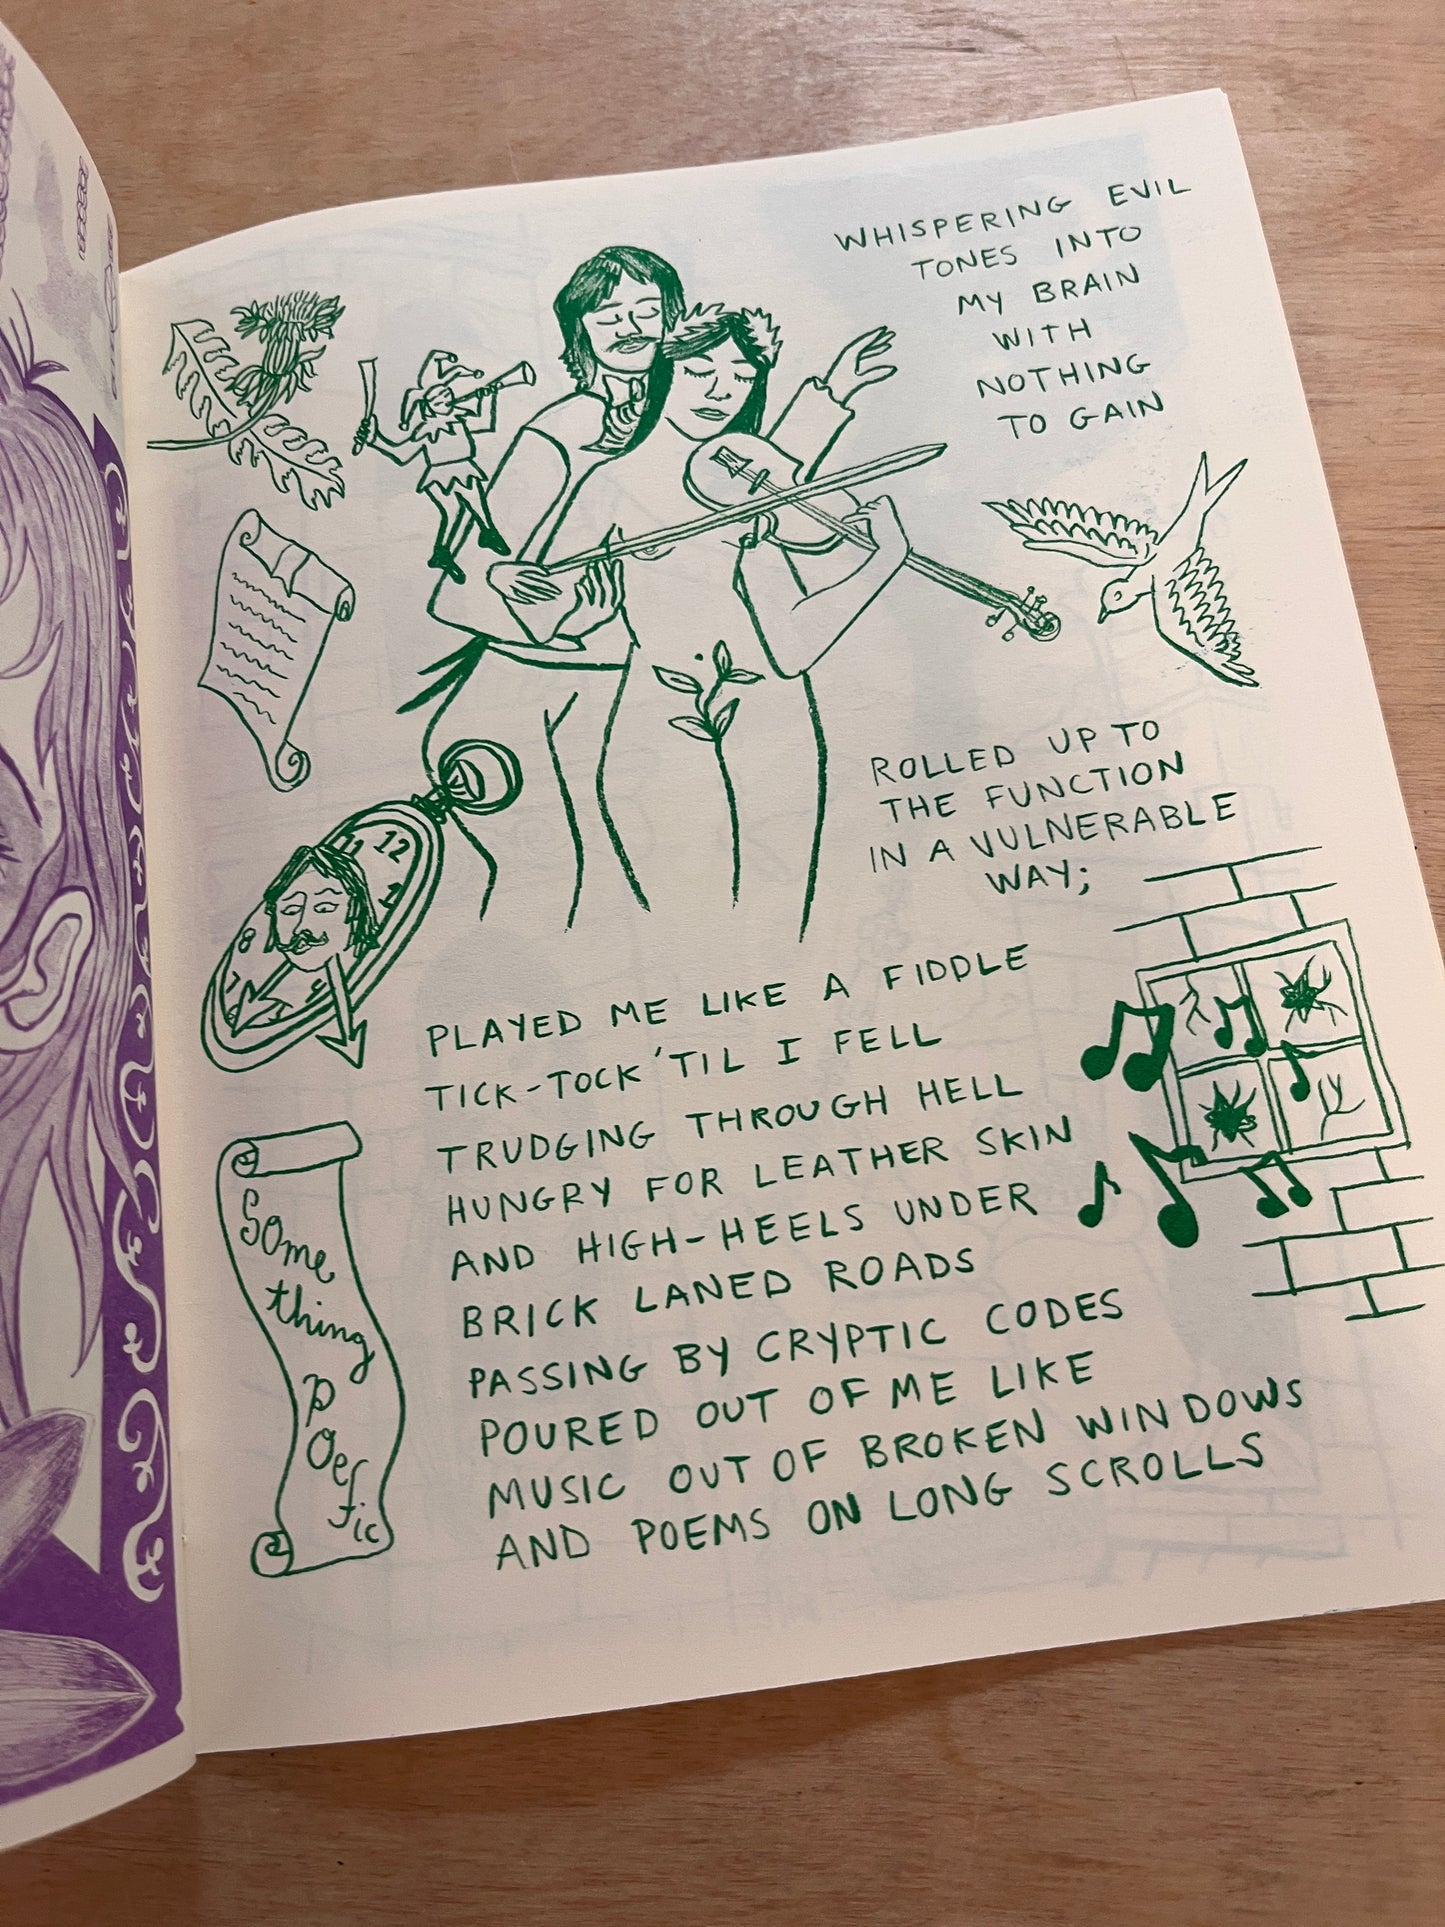 WHISPERING EVIL
TONES INTO
MY BRAIN
WITH
NOTHING
TO GAIN
ROLLED UP TO
THE FUNCTION
IN A VULNERABLE
WAY;
11 12
1
8
7
6
PLAYED ME LIKE A FIDDLE
TICK-TOCK 'TIL I FELL
TRUDGING THROUGH HELL
HUNGRY FOR LEATHER SKIN
AND HIGH-HEELS UNDER
BRICK LANED ROADS
PASSING BY CRYPTIC CODES
POURED OUT OF ME LIKE
MUSIC OUT OF BROKEN WINDOWS
AND POEMS ON LONG SCROLLS
Some
thing
p
oe
tic